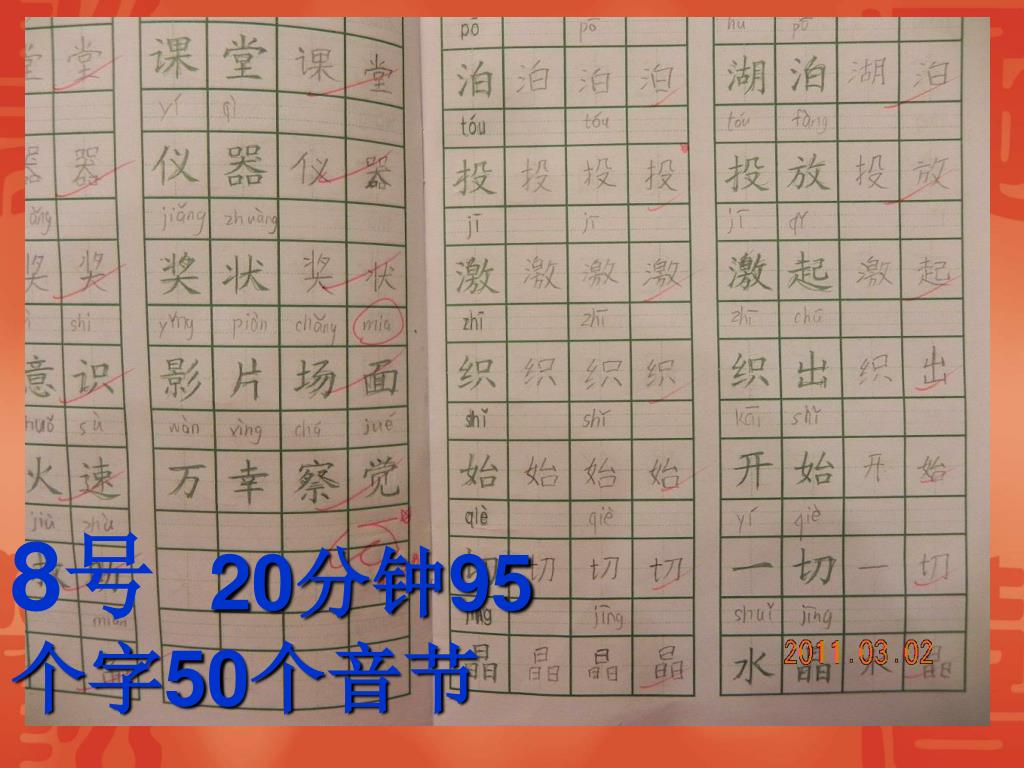 堂 堂
器 器
奖 奖
shi
意 识
sù
火 速
课 堂 课 堂
yí qì
仪 器 仪 器
jiǎng zhuàng
奖 状 奖 状
yǐng piàn chǎng mià
影 片 场 面
wàn xìng chá jué
万 幸 察 觉
pō pō
泊 泊 泊 泊
tóu tóu
投 投 投 投
jī jī
激 激 激 激
zhī zhī
织 织 织 织
shǐ shǐ
始 始 始 始
qiè qiè
切 切 切 切
jīng jīng
晶 晶 晶 晶
hú pō
湖 泊 湖 泊
tóu fàng
投 放 投 放
jī qǐ
激 起 激 起
zhī chū
织 出 织 出
kāi shǐ
开 始 开 始
yí qiè
一 切 一 切
shuǐ jīng
水 晶 水 晶
2011.03.02
8号 20分钟95
个字50个音节